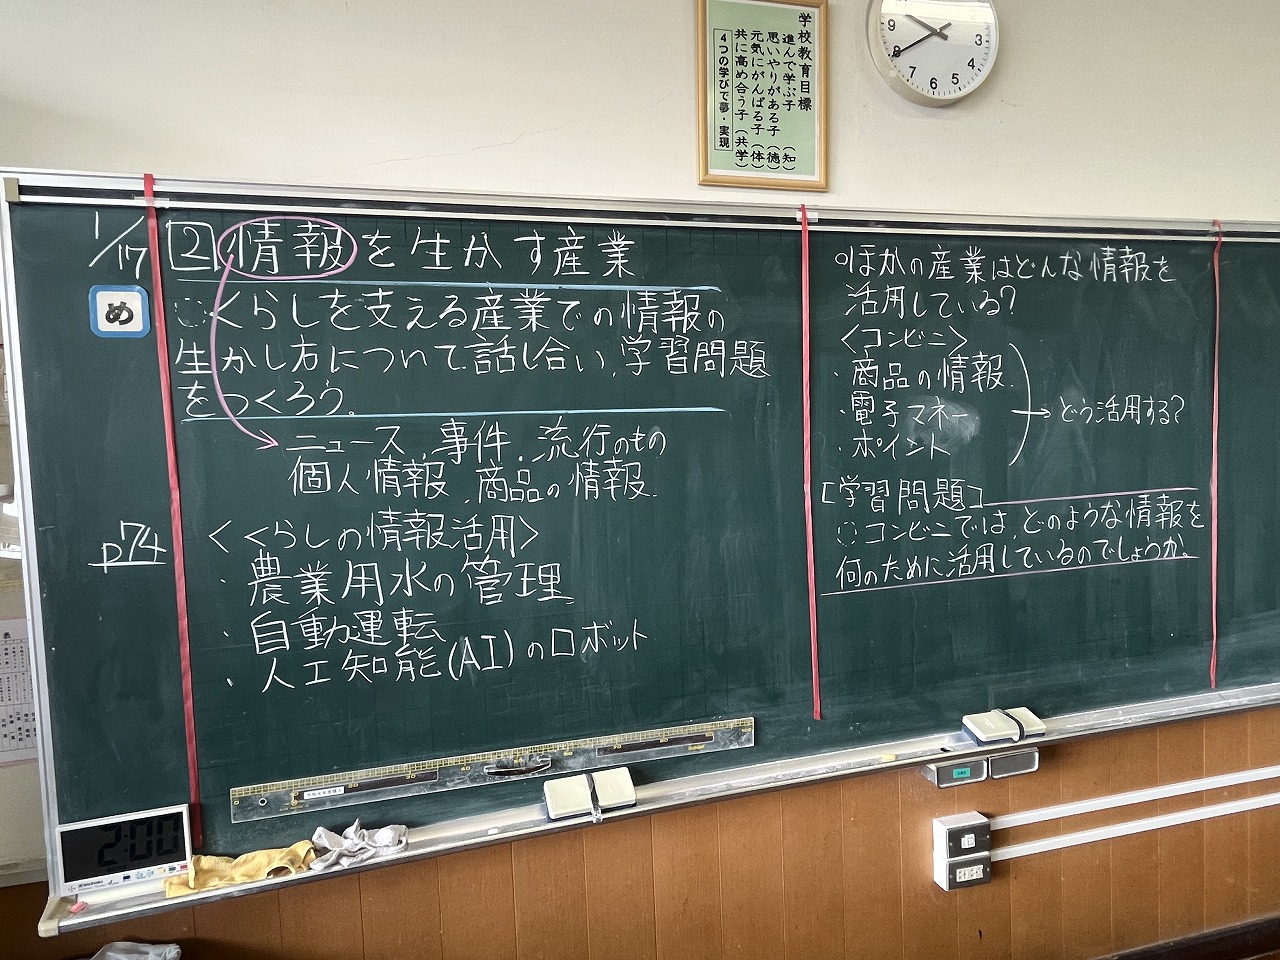 学校教育目標
進んで学ぶ子 (知)
思いやりがある子 (徳)
元気にがんばる子 (体)
共に高め合う子 (共学)
4つの学びで夢・実現
9
8
7
6
5
4
3
1/17
2 情報を生かす産業
め
くらしを支える産業での情報の
生かし方について話し合い、学習問題
をつくろう。
ニュース、事件、流行のもの
個人情報、商品の情報
p74
<くらしの情報活用>
・農業用水の管理
・自動運転
・人工知能(AI)のロボット
○ほかの産業はどんな情報を
活用している?
<コンビニ>
・商品の情報
・電子マネー
・ポイント
→どう活用する?
[学習問題]
コンビニでは、どのような情報を
何のために活用しているのでしょうか。
2:00